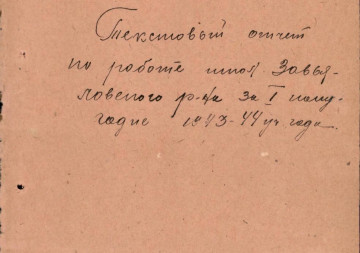 Текстовый отчет
по работе школ Завья-
ловского р-на за I полу-
годие 1943-44 уч года.